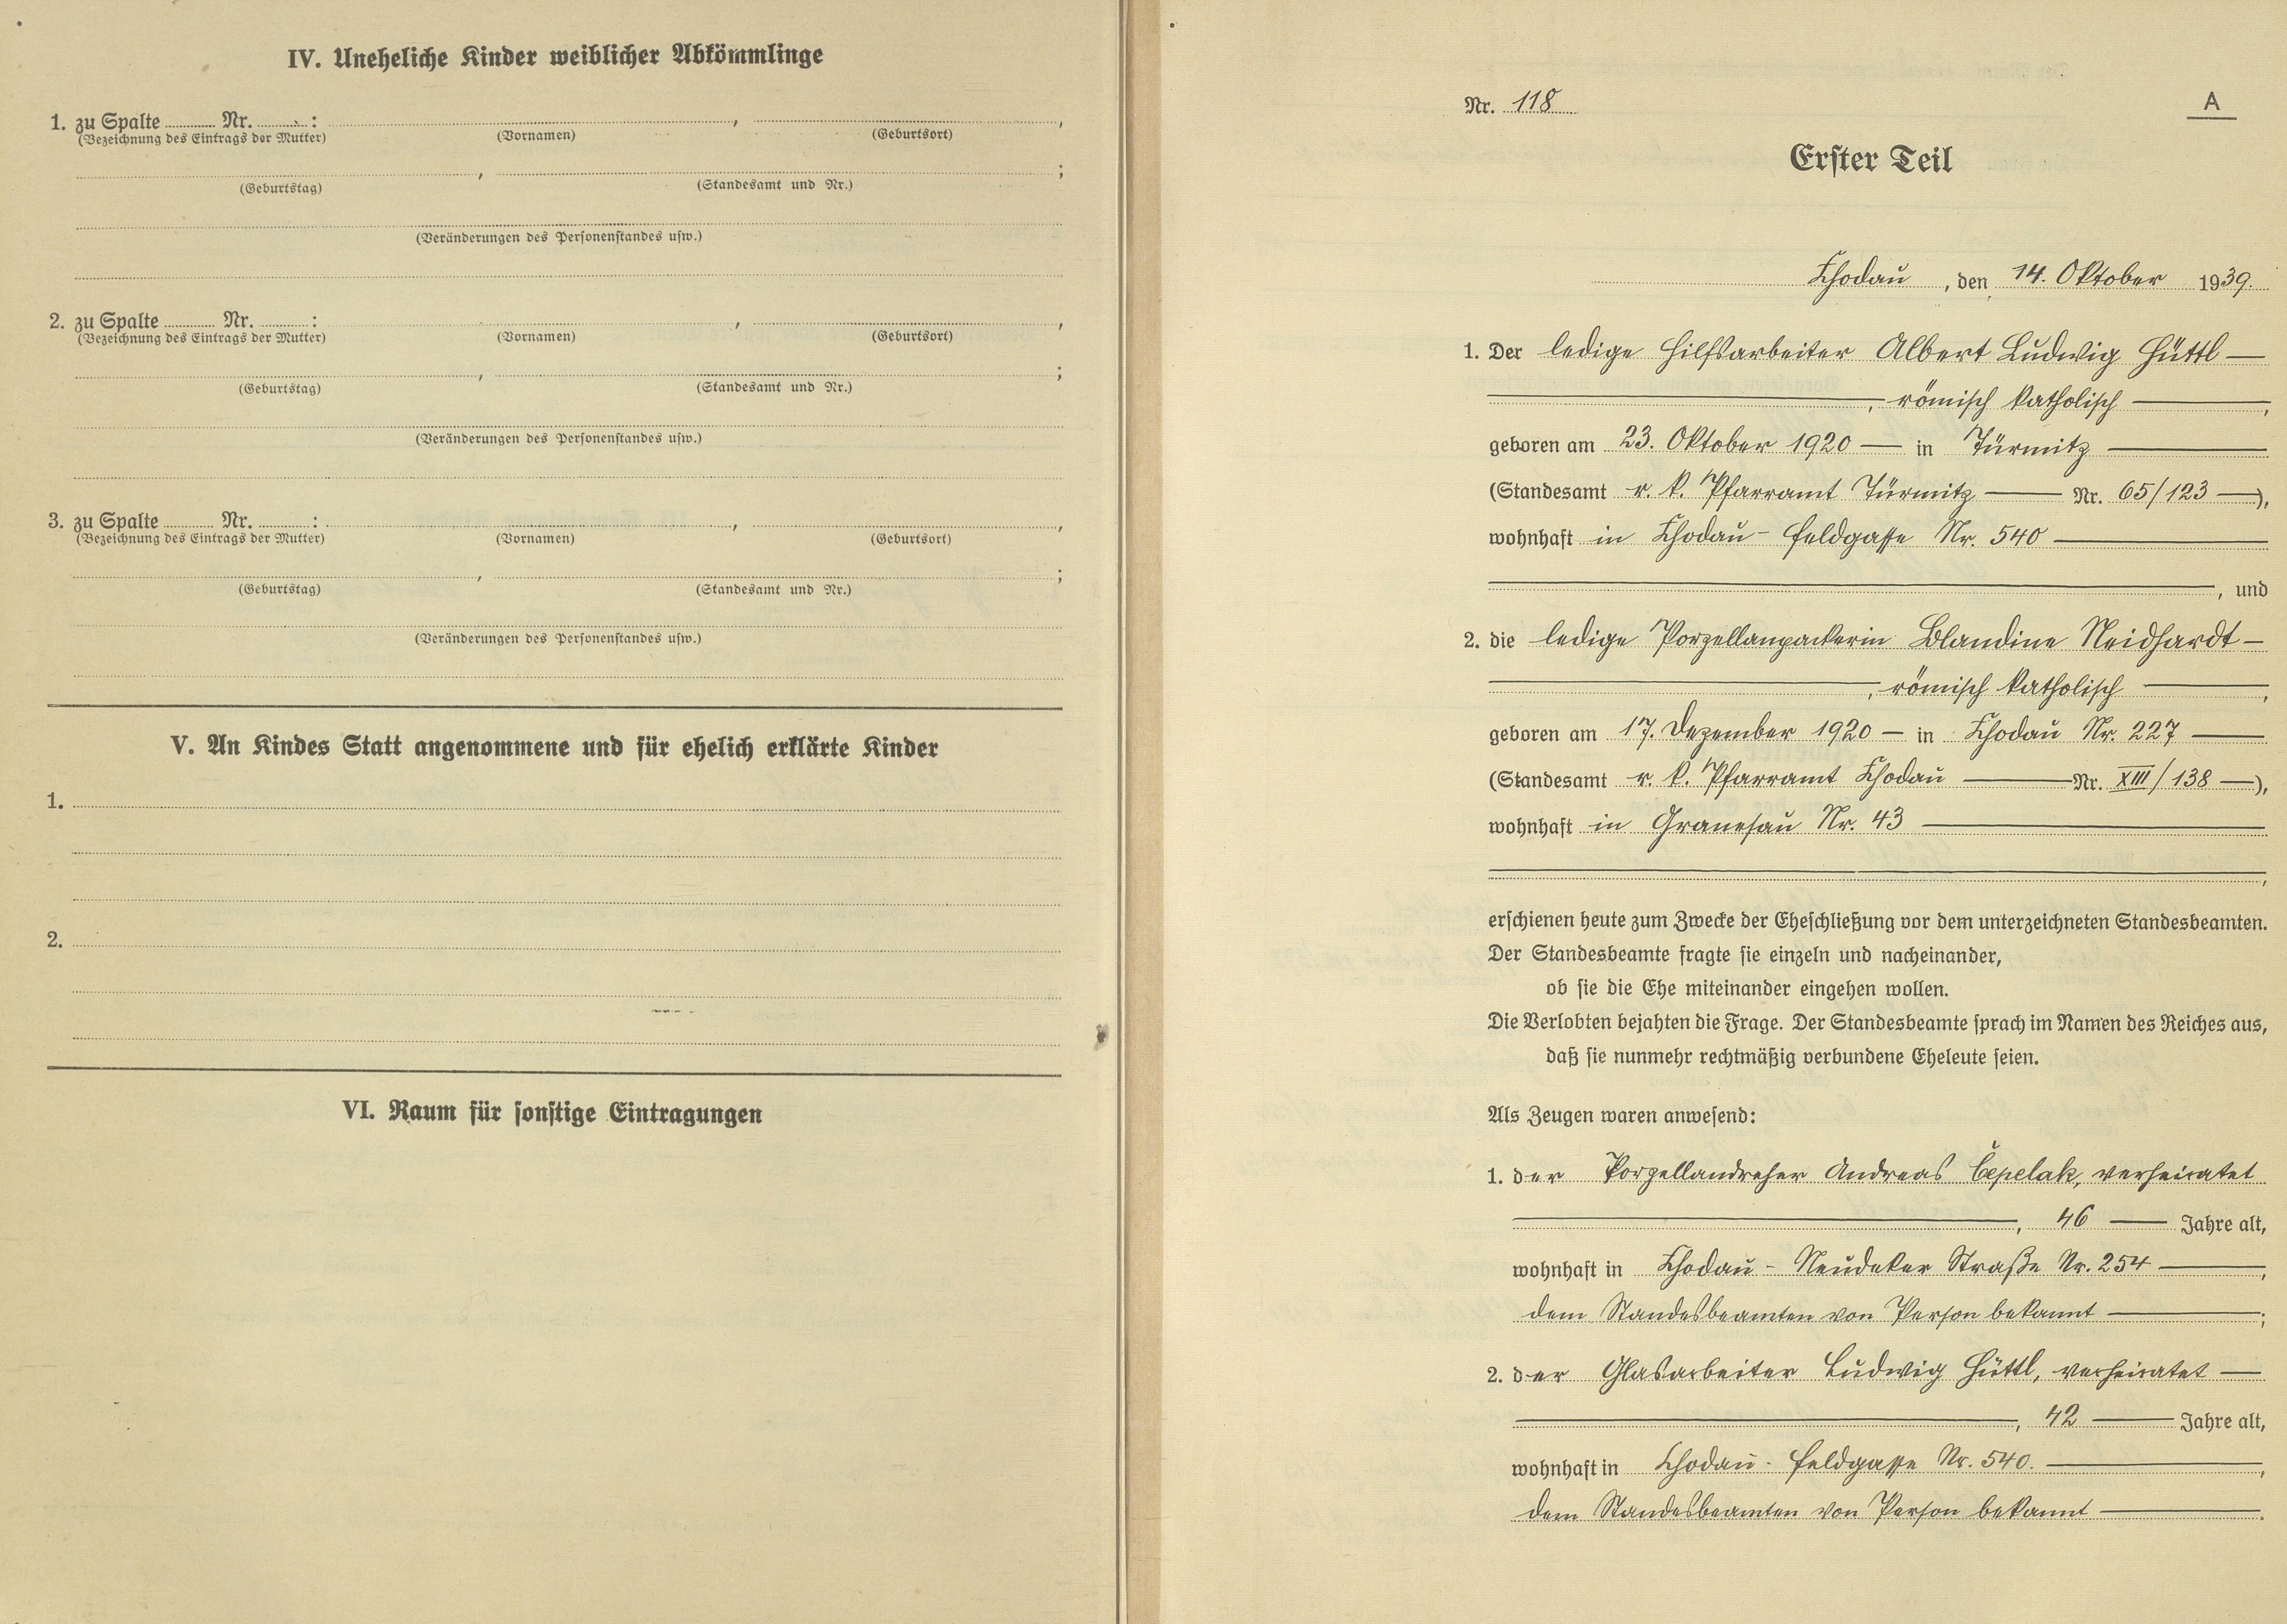 IV. Uneheliche Kinder weiblicher Abkömmlinge
1. zu Spalte ........ Nr. ........ : ........ , ........ ,
(Bezeichnung des Eintrags der Mutter) (Vornamen) (Geburtsort)
........ , ........ ;
(Geburtstag) (Standesamt und Nr.)
(Veränderungen des Personenstandes usw.)
2. zu Spalte ........ Nr. ........ : ........ , ........ ,
(Bezeichnung des Eintrags der Mutter) (Vornamen) (Geburtsort)
........ , ........ ;
(Geburtstag) (Standesamt und Nr.)
(Veränderungen des Personenstandes usw.)
3. zu Spalte ........ Nr. ........ : ........ , ........ ,
(Bezeichnung des Eintrags der Mutter) (Vornamen) (Geburtsort)
........ , ........ ;
(Geburtstag) (Standesamt und Nr.)
(Veränderungen des Personenstandes usw.)
V. An Kindes Statt angenommene und für ehelich erklärte Kinder
1.
2.
VI. Raum für sonstige Eintragungen
Nr. 118 A
Erster Teil
Chodau, den 14. Oktober 1939.
1. Der ledige Hilfsarbeiter Albert Ludwig Hüttl —
—, römisch katholisch —,
geboren am 23. Oktober 1920 — in Türmitz —
(Standesamt r. k. Pfarramt Türmitz — Nr. 65/123 —),
wohnhaft in Chodau - Feldgasse Nr. 540 —
—, und
2. die ledige Porzellanpackerin Blandine Neidhardt —
—, römisch katholisch —,
geboren am 17. Dezember 1920 — in Chodau Nr. 227 —
(Standesamt r. k. Pfarramt Chodau — Nr. XIII/138 —),
wohnhaft in Granesau Nr. 43 —
—,
erschienen heute zum Zwecke der Eheschließung vor dem unterzeichneten Standesbeamten.
Der Standesbeamte fragte sie einzeln und nacheinander,
ob sie die Ehe miteinander eingehen wollen.
Die Verlobten bejahten die Frage. Der Standesbeamte sprach im Namen des Reiches aus,
daß sie nunmehr rechtmäßig verbundene Eheleute seien.
Als Zeugen waren anwesend:
1. der Porzellandreher Andreas Čepelak, verheiratet
—, 46 — Jahre alt,
wohnhaft in Chodau - Neudeker Straße Nr. 254 —,
dem Standesbeamten von Person bekannt —;
2. der Glasarbeiter Ludwig Hüttl, verheiratet —
—, 42 — Jahre alt,
wohnhaft in Chodau - Feldgasse Nr. 540. —,
dem Standesbeamten von Person bekannt —.